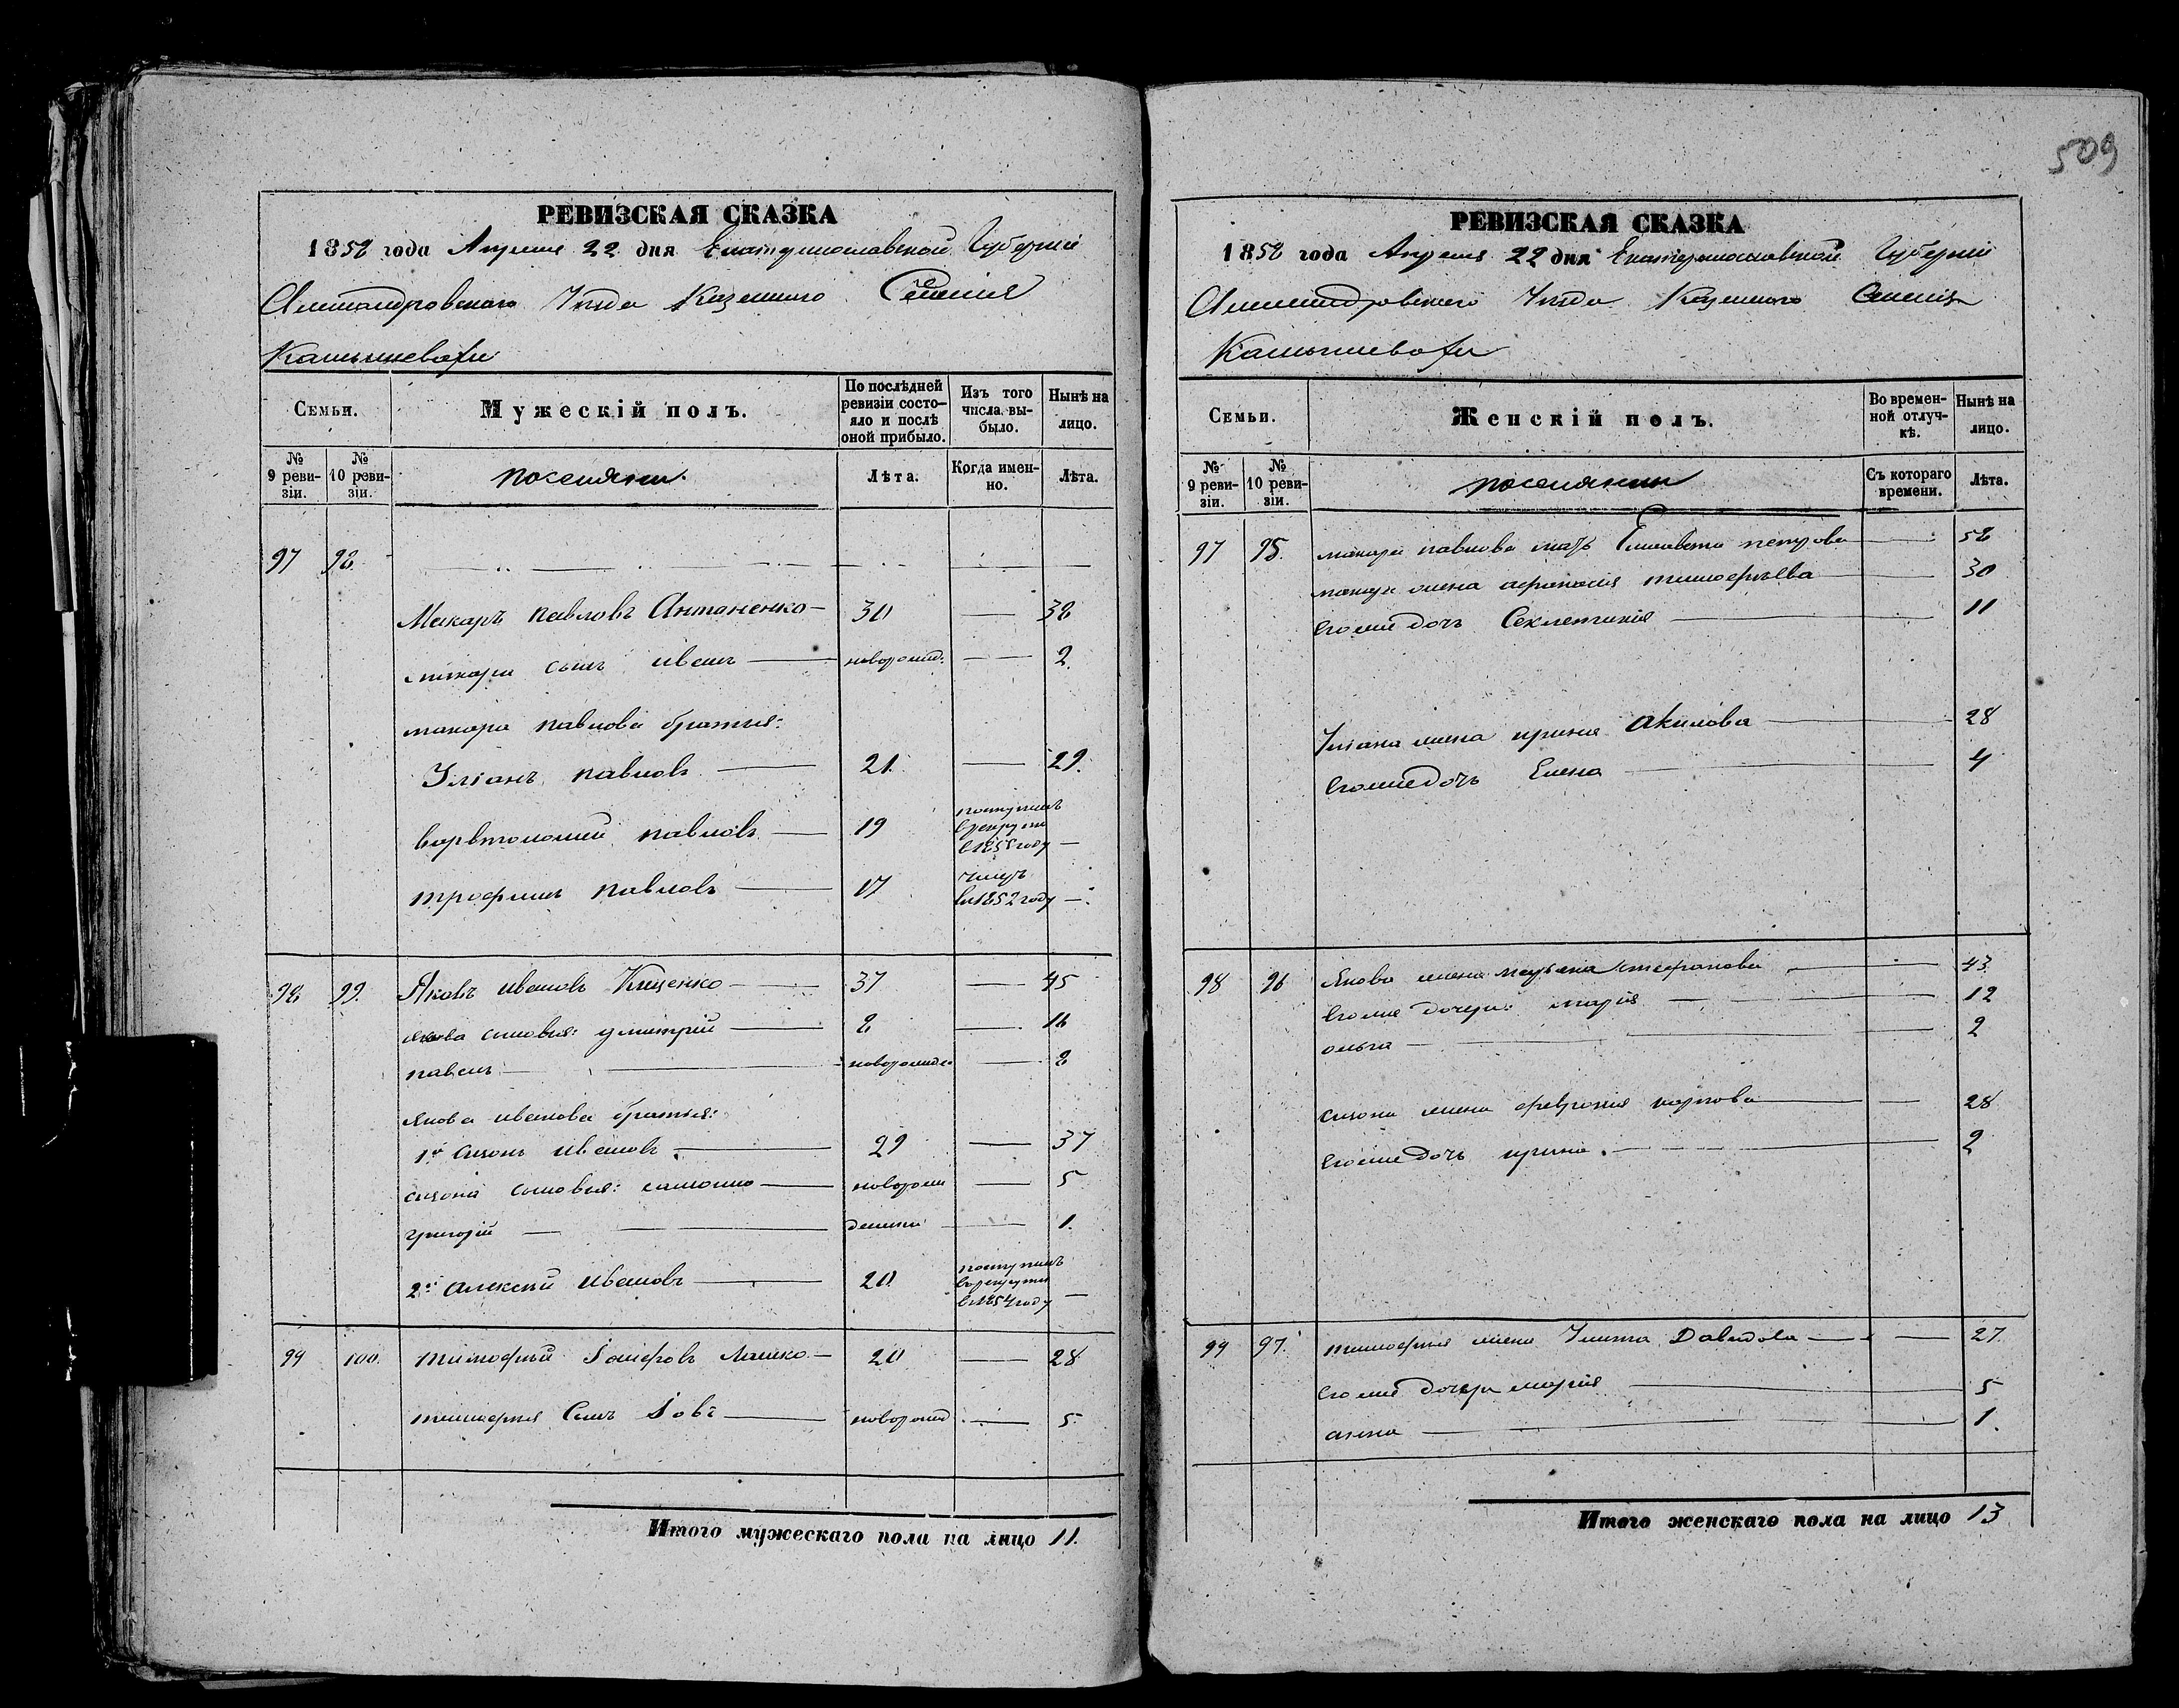 509
РЕВИЗСКАЯ СКАЗКА
1858 года Апреля 22 дня Екатеринославской Губерніи
Александровскаго Уѣзда Казеннаго Селенія
Камышевахи
Семьи.
Мужескій полъ.
По послѣдней ревизіи состояло и послѣ оной прибыло.
Изъ того числа выбыло.
Нынѣ на лицо.
№ 9 ревизіи.
№ 10 ревизіи.
поселяни.
Лѣта.
Когда именно.
Лѣта.
97 98
Макаръ павловъ Антоненко 30 38
макара сынъ иванъ новорожд. 2.
макара павлова братья:
Уліанъ павловъ 21. 29.
варѳтоломей павловъ 19 поступилъ в рекруты в 1855 году
трофимъ павловъ 17 умеръ в 1852 году
98 99. Яковъ ивановъ Кищенко 37 45
якова сыновья: дмитрій 8 16
павелъ новорожден 8
якова иванова братья:
1й сизонъ ивановъ 29 37
сизона сыновья: самойло новорож 5
григорій денные 1.
2й алексѣй ивановъ 20 поступилъ в рекруты в 1854 году
99 100. тимофѣй Іосифовъ Ляшко 20 28
тимофея Сынъ Іовъ новорожд 5.
Итого мужескаго пола на лицо 11.
РЕВИЗСКАЯ СКАЗКА
1858 года Апреля 22 дня Екатеринославской Губерніи
Александровскаго Уѣзда Казеннаго Селенія
Камышевахи
Семьи.
Женскій полъ.
Во временной отлучкѣ.
Нынѣ на лицо.
№ 9 ревизіи.
№ 10 ревизіи.
поселяни
Съ котораго времени.
Лѣта.
97 95. макара павлова мать Елисавета петрова 58
макара жена афанасія тимофѣева 30
Его же дочь Секлетинія 11
Уліана жена ирина акилова 28
Его же дочь Елена 4
98 96 Якова жена татьяна стефанова 43.
Его же дочери: марія 12
ольга 2
сизона жена феврония карпова 28
Его же дочь ирина. 2
99 97. тимофея жена Улита Давидова 27.
Его же дочери марія 5
анна 1.
Итого женскаго пола на лицо 13